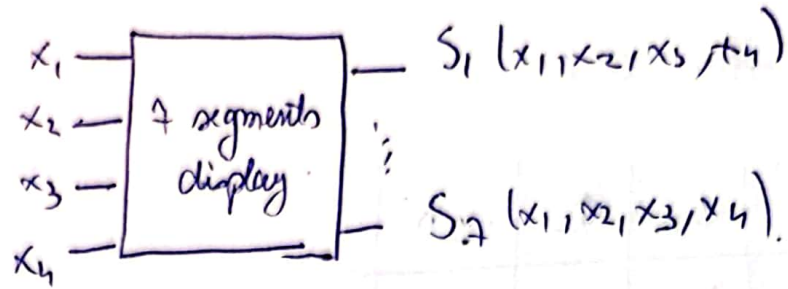 x₁
x₂
x₃
x₄
7 segments
display
S₁ (x₁, x₂, x₃, x₄)
⋮
S₇ (x₁, x₂, x₃, x₄).